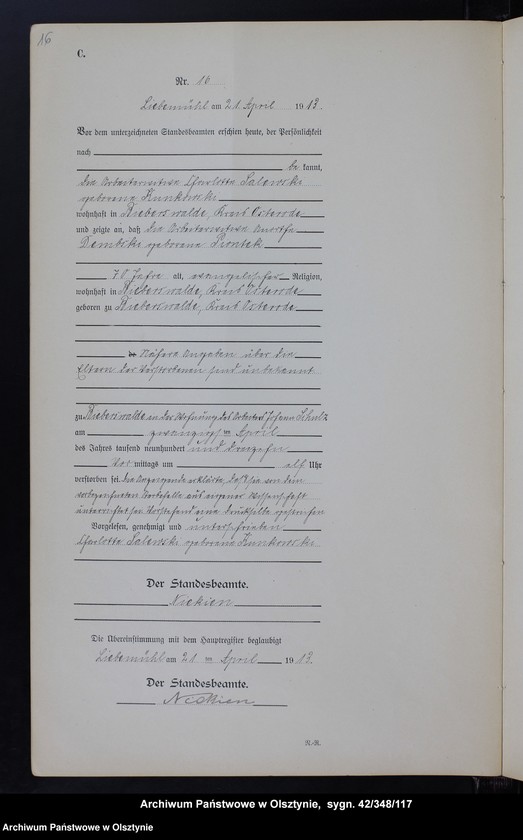 16
C.
Nr. 16
Liebemühl am 21. April 1913.
Vor dem unterzeichneten Standesbeamten erschien heute, der Persönlichkeit
nach
be kannt,
die Arbeiterwitwe Charlotte Salewski
geborene Kunkowski
wohnhaft in Bieberswalde, Kreis Osterode
und zeigte an, daß die Arbeiterwitwe
Dembski geborene Piontek
70 Jahre alt, evangelischer Religion,
wohnhaft in Bieberswalde, Kreis Osterode
geboren zu Bieberswalde, Kreis Osterode
Nähere Angaben über die
Eltern der Verstorbenen sind unbekannt
zu Bieberswalde in der Wohnung des Arbeiters Johann Schulz
am zwanzigsten April
des Jahres tausend neunhundert und dreizehn
Vor mittags um elf Uhr
verstorben sei. Die Anzeigende erklärte, daß sie von dem
vorbezeichneten Sterbefalle aus eigener Wissenschaft
unterrichtet sei. Vorstehend eine Druckfalte gestrichen
Vorgelesen, genehmigt und unterschrieben
Charlotte Salewski geborene Kunkowski
Der Standesbeamte.
Nickien
Die Übereinstimmung mit dem Hauptregister beglaubigt
Liebemühl am 21 ten April 1913.
Der Standesbeamte.
Nickien
R.-R.
Archiwum Państwowe w Olsztynie, sygn. 42/348/117
Archiwum Państwowe w Olsztynie